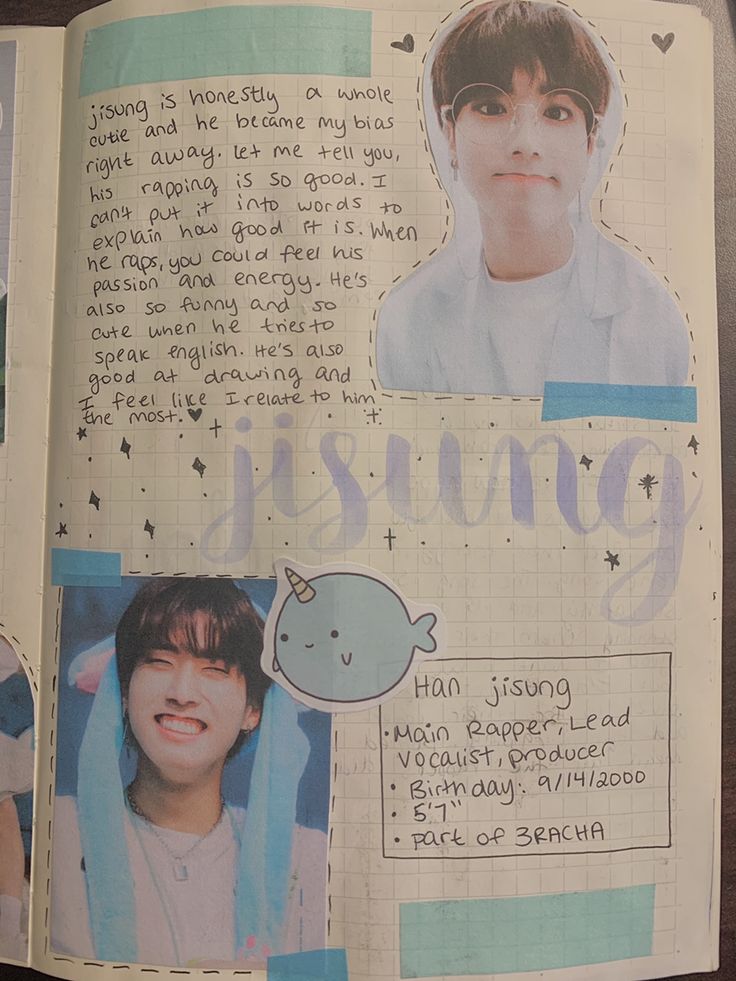 jisung is honestly a whole
cutie and he became my bias
right away. Let me tell you,
his rapping is so good. I
can't put it into words to
explain how good it is. When
he raps, you could feel his
passion and energy. He's
also so funny and, so
cute when he tries to
speak english. He's also
good at drawing and
I feel like I relate to him
the most.
jisung
Han jisung
• Main Rapper, Lead
Vocalist, producer
• Birthday: 9/14/2000
• 5'7"
• part of 3RACHA